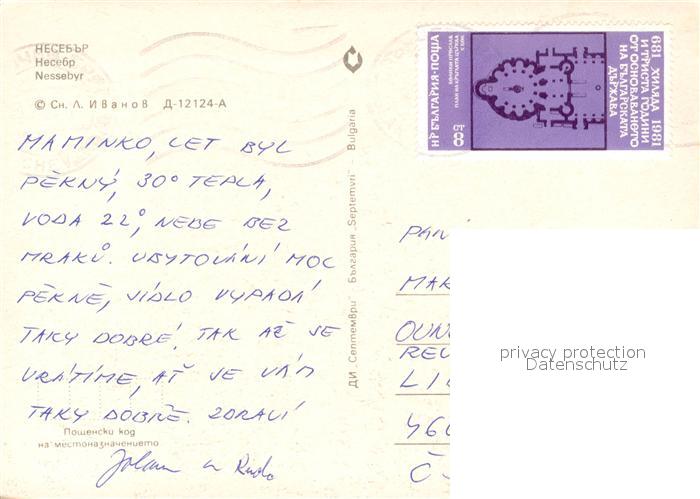 НЕСЕБЪР
Несебр
Nessebyr
© Сн. Л. Иванов Д-12124-А
MAMINKO, LET BYL
PĚKNÝ, 30° TEPLA,
VODA 22°, NEBE BEZ
MRAKŮ. UBYTOVÁNÍ MOC
PĚKNÉ, JÍDLO VYPADÁ
TAKY DOBRÉ, TAK AŽ SE
VRÁTÍME, AŤ JE VÁM
TAKY DOBŘE. ZDRAVÍ
Пощенски код
на местоназначението
ДИ „Септември" България „Septemvri" Bulgaria
НР БЪЛГАРИЯ·ПОЩА
8 СТ
681 ХИЛЯДА 1981
И ТРИСТА ГОДИНИ
ОТ ОСНОВАВАНЕТО
НА БЪЛГАРСКАТА
ДЪРЖАВА
PAN
MAR
REV
LI
460
privacy protection
Datenschutz